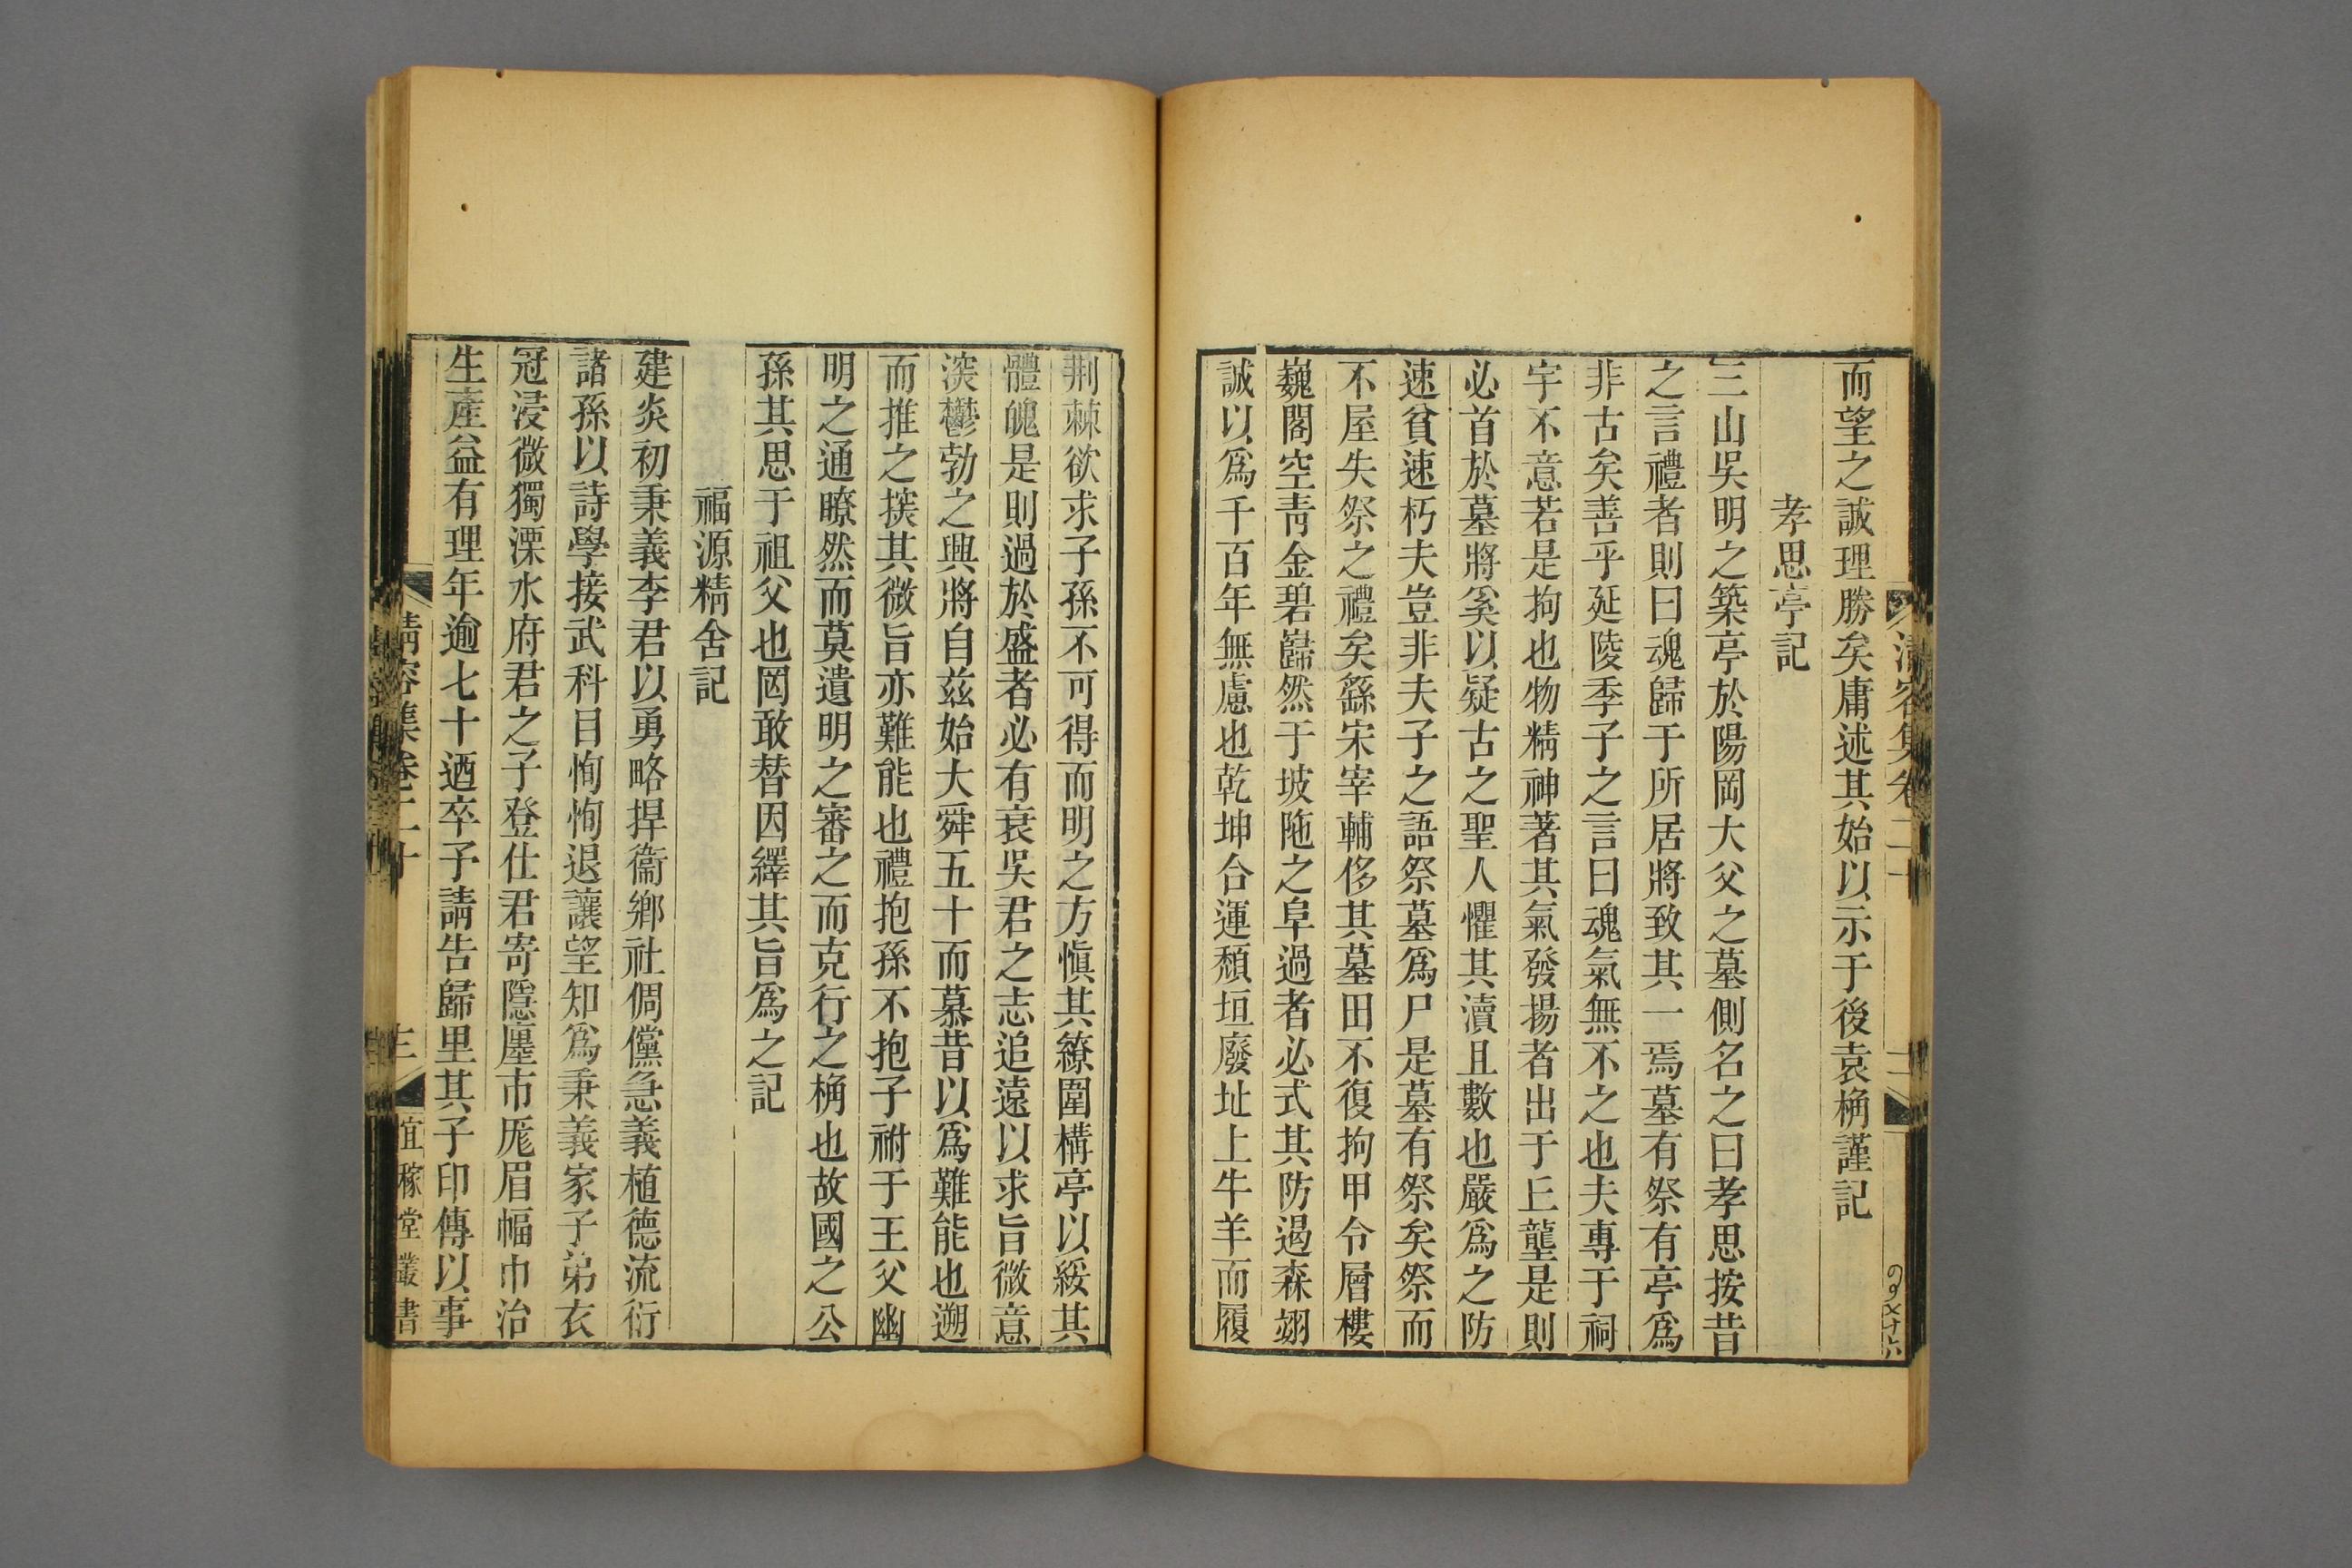 而望之誠理勝矣庸述其始以示于後袁桷謹記
孝思亭記
三山吳明之築亭於陽岡大父之墓側名之曰孝思按昔
之言禮者則曰魂歸于所居將致其一焉墓有祭有亭爲
非古矣善乎延陵季子之言曰魂氣無不之也夫專于祠
宇不意若是拘也物精神著其氣發揚者出于丘壟是則
必首於墓將奚以疑古之聖人懼其瀆且數也嚴爲之防
速貧速朽夫豈非夫子之語祭墓爲尸是墓有祭矣祭而
不屋失祭之禮矣繇宋宰輔侈其墓田不復拘甲令層樓
巍閣空靑金碧巋然于坡陁之阜過者必式其防遏森翊
誠以爲千百年無慮也乾坤合運頽垣廢址上牛羊而履
荆棘欲求子孫不可得而明之方愼其繚圍構亭以綏其
體魄是則過於盛者必有衰吳君之志追遠以求旨微意
深鬱勃之興將自茲始大舜五十而慕昔以爲難能也遡
而推之揆其微旨亦難能也禮抱孫不抱子祔于王父幽
明之通瞭然而莫遺明之審之而克行之桷也故國之公
孫其思于祖父也罔敢替因繹其旨爲之記
福源精舍記
建炎初秉義李君以勇略捍衞鄕社倜儻急義植德流衍
諸孫以詩學接武科目恂恂退讓望知爲秉義家子弟衣
冠浸微獨溧水府君之子登仕君寄隱廛市厖眉幅巾治
生產益有理年逾七十迺卒予請告歸里其子印傳以事
淸容集卷二十
三
宜稼堂叢書